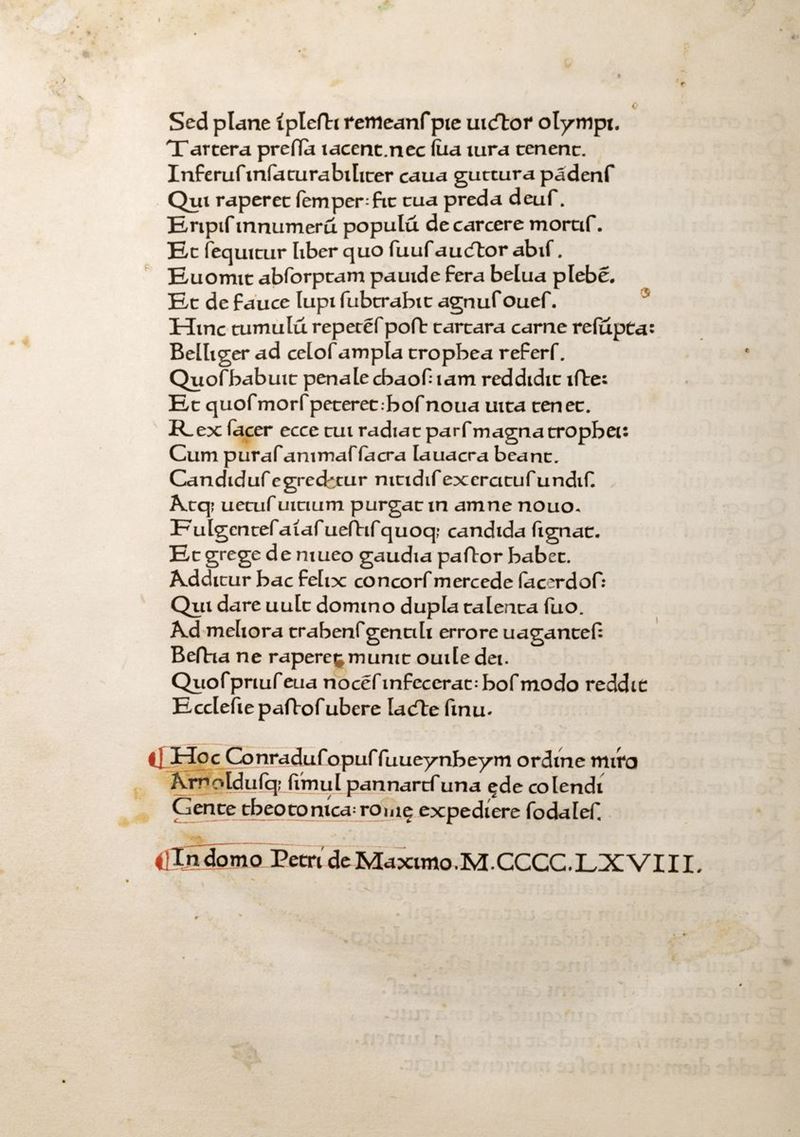 Sed plane ĩpleſti remeanſ pie uictor olympi.
Tartera preſſa iacent.nec ſua iura tenent.
Inferuſ inſaturabiliter caua guttura pãdenſ
Qui raperet ſemper: fit tua preda deuſ.
Eripiſ innumerũ populũ de carcere mortiſ.
Et ſequitur liber quo ſuuſ auctor abiſ.
Euomit abſorptam pauide fera belua plebẽ.
Et de fauce lupi ſubtrahit agnuſ oueſ.
Hinc tumulũ repetẽſ poſt tartara carne reſũpta:
Belliger ad celoſ ampla trophea referſ.
Quoſ habuit penale chaoſ: iam reddidit iſte:
Et quoſ morſ peteret: hoſ noua uita tenet.
Rex ſacer ecce tui radiat parſ magna trophei:
Cum puraſ animaſ ſacra lauacra beant.
Candiduſ egreditur nitidiſ exercituſ undiſ.
Atq; uetuſ uitium purgat in amne nouo.
Fulgenteſ aĩaſ ueſtiſ quoq; candida ſignat.
Et grege de niueo gaudia paſtor habet.
Additur hac felix concorſ mercede ſacerdoſ:
Qui dare uult domino dupla talenta ſuo.
Ad meliora trahenſ gentili errore uaganteſ:
Beſtia ne raperet munit ouile dei.
Quoſ priuſ eua nocẽſ infecerat: hoſ modo reddit
Eccleſie paſtoſ ubere lacte ſinu.
¶ Hoc Conraduſ opuſ ſuueynheym ordine miro
Arnolduſq; ſimul pannartſ una ęde colendi
Gente theotonica: romę expediere ſodaleſ.
¶ In domo Petri de Maximo.M.CCCC.LXVIII.